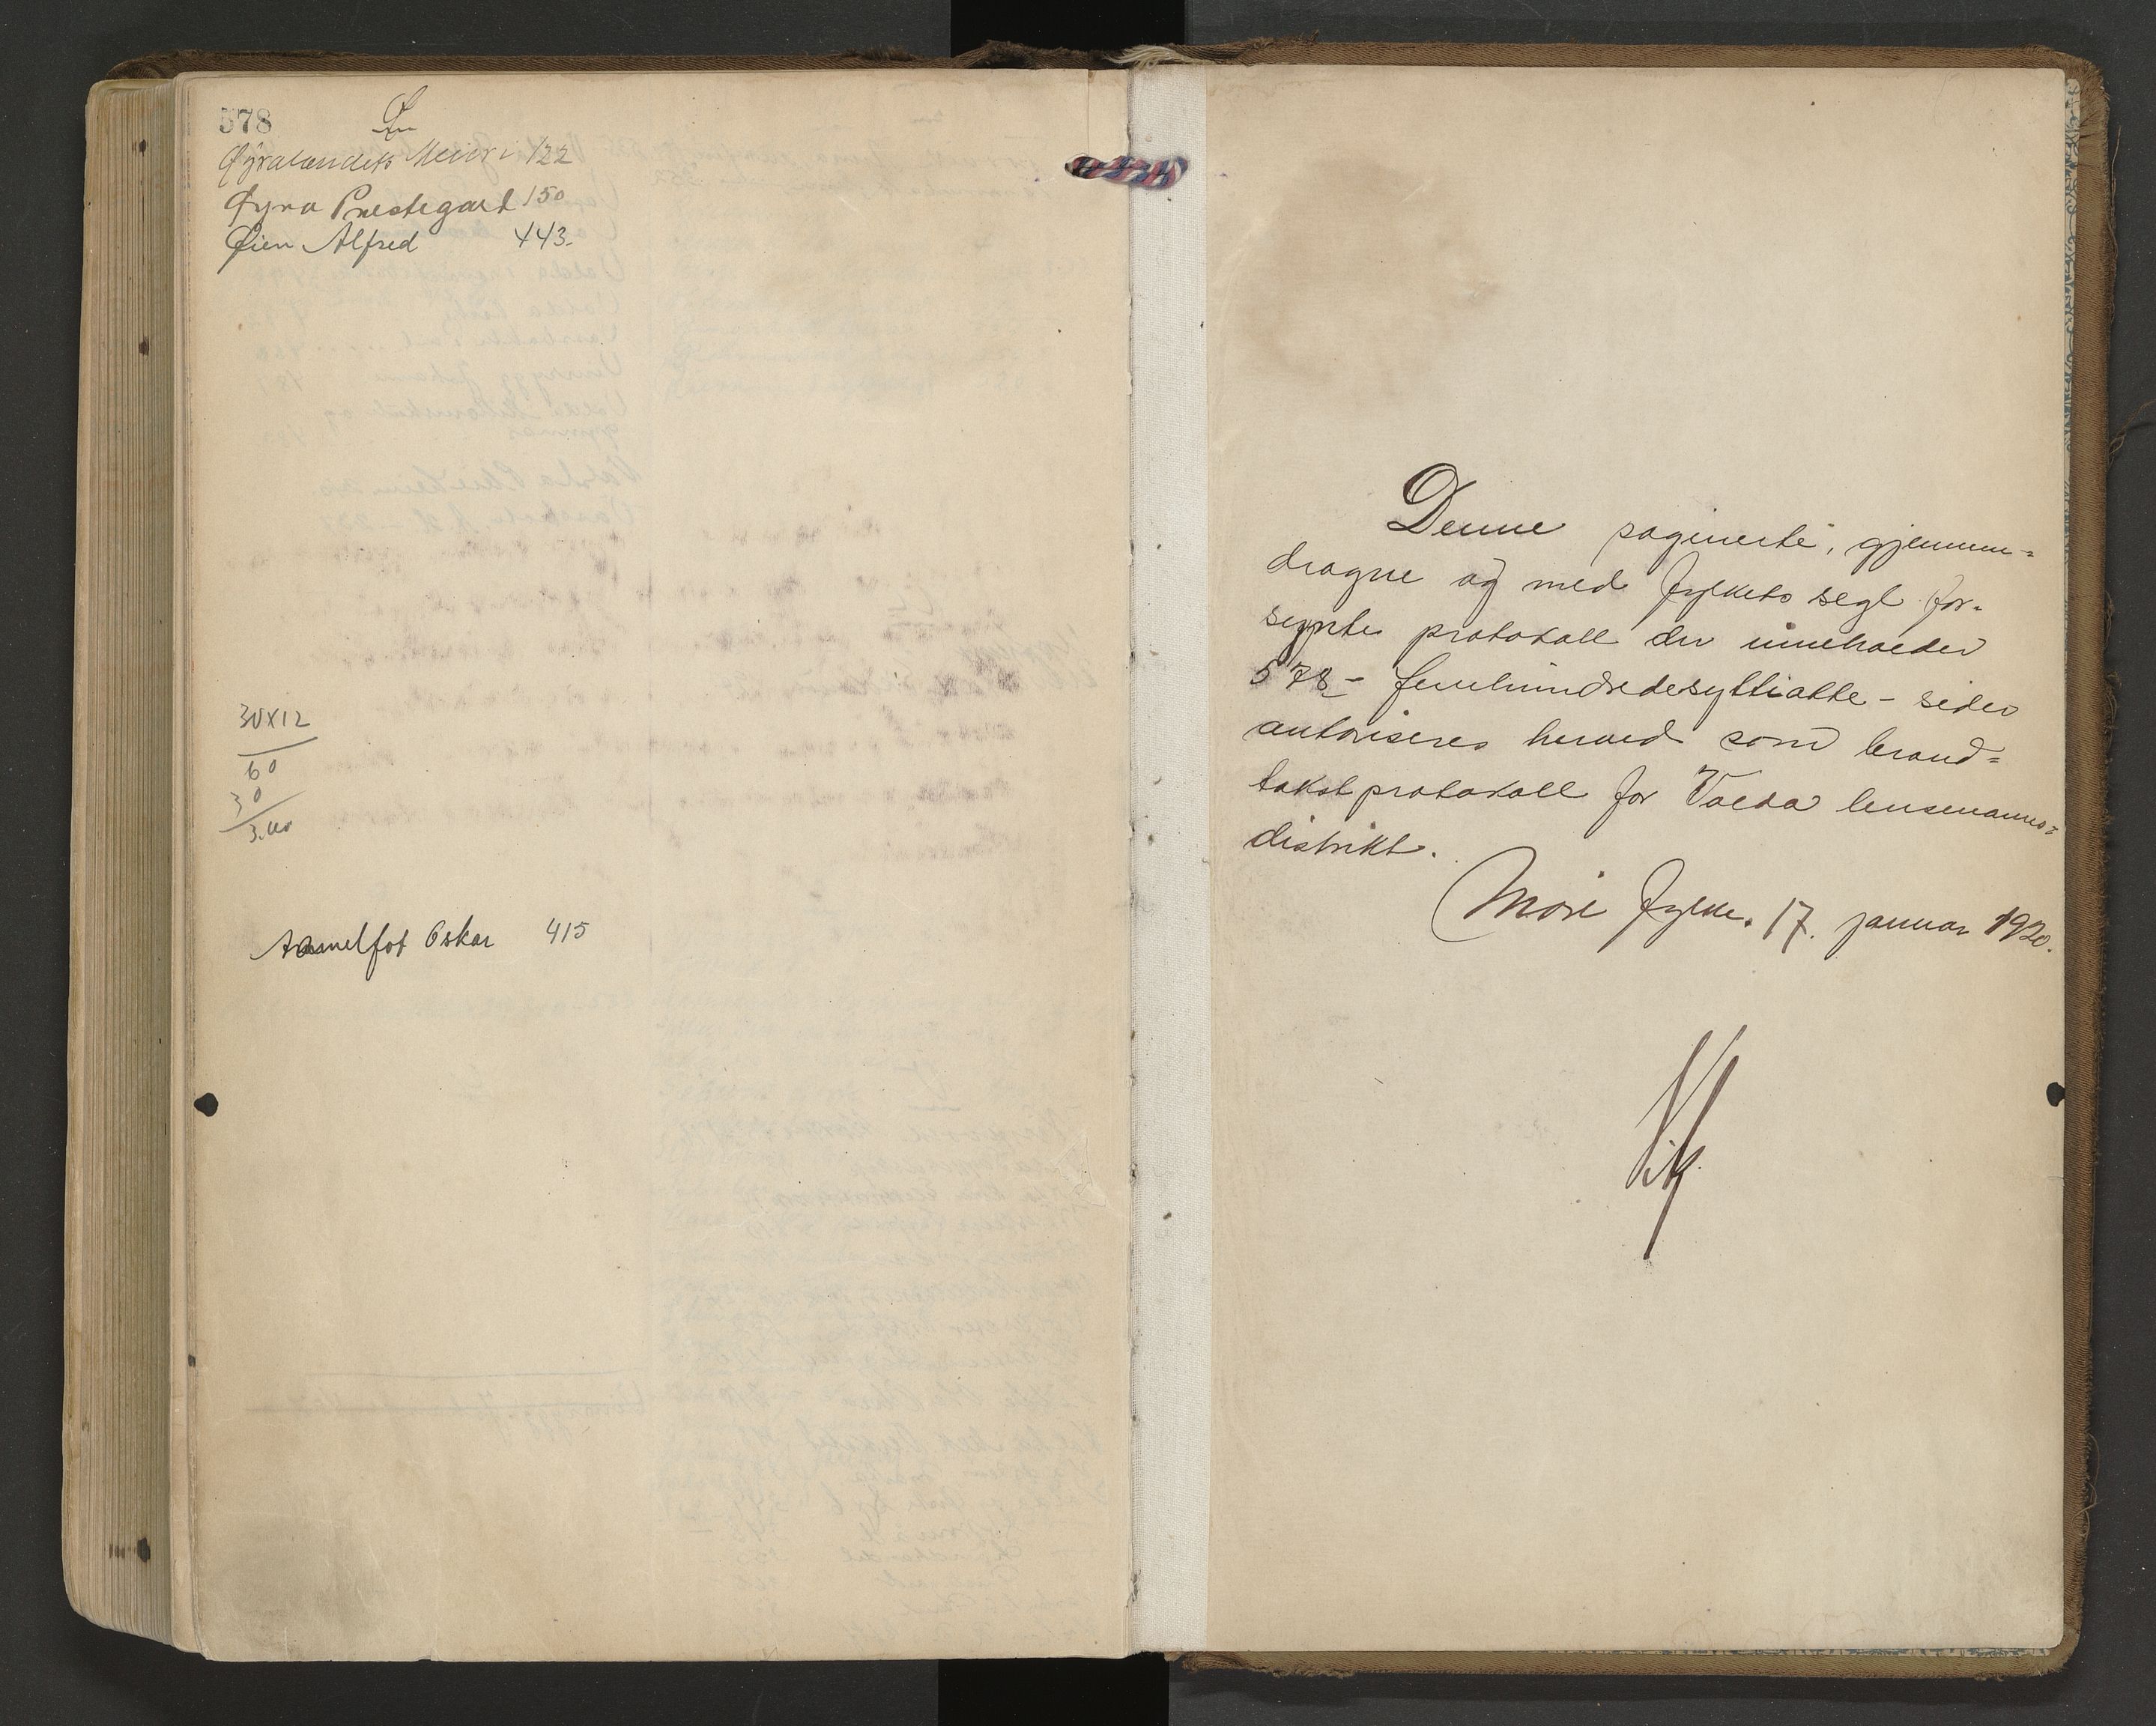 578
Ø
Øyralandets Meieri 122
Øyra Prestegard 150
Øien Alfred 443.
30X12
60
30
3.60
Aamelfot Oskar 415
Denne paginerte, gjennem=
dragne og med fylkets segl for-
synte protokoll der inneholder
578 - femhundredesyttiatte - sider
autoriseres herved som brand=
takstprotokoll for Volda lensmanns=
distrikt.
Møre fylke. 17. januar 1920.